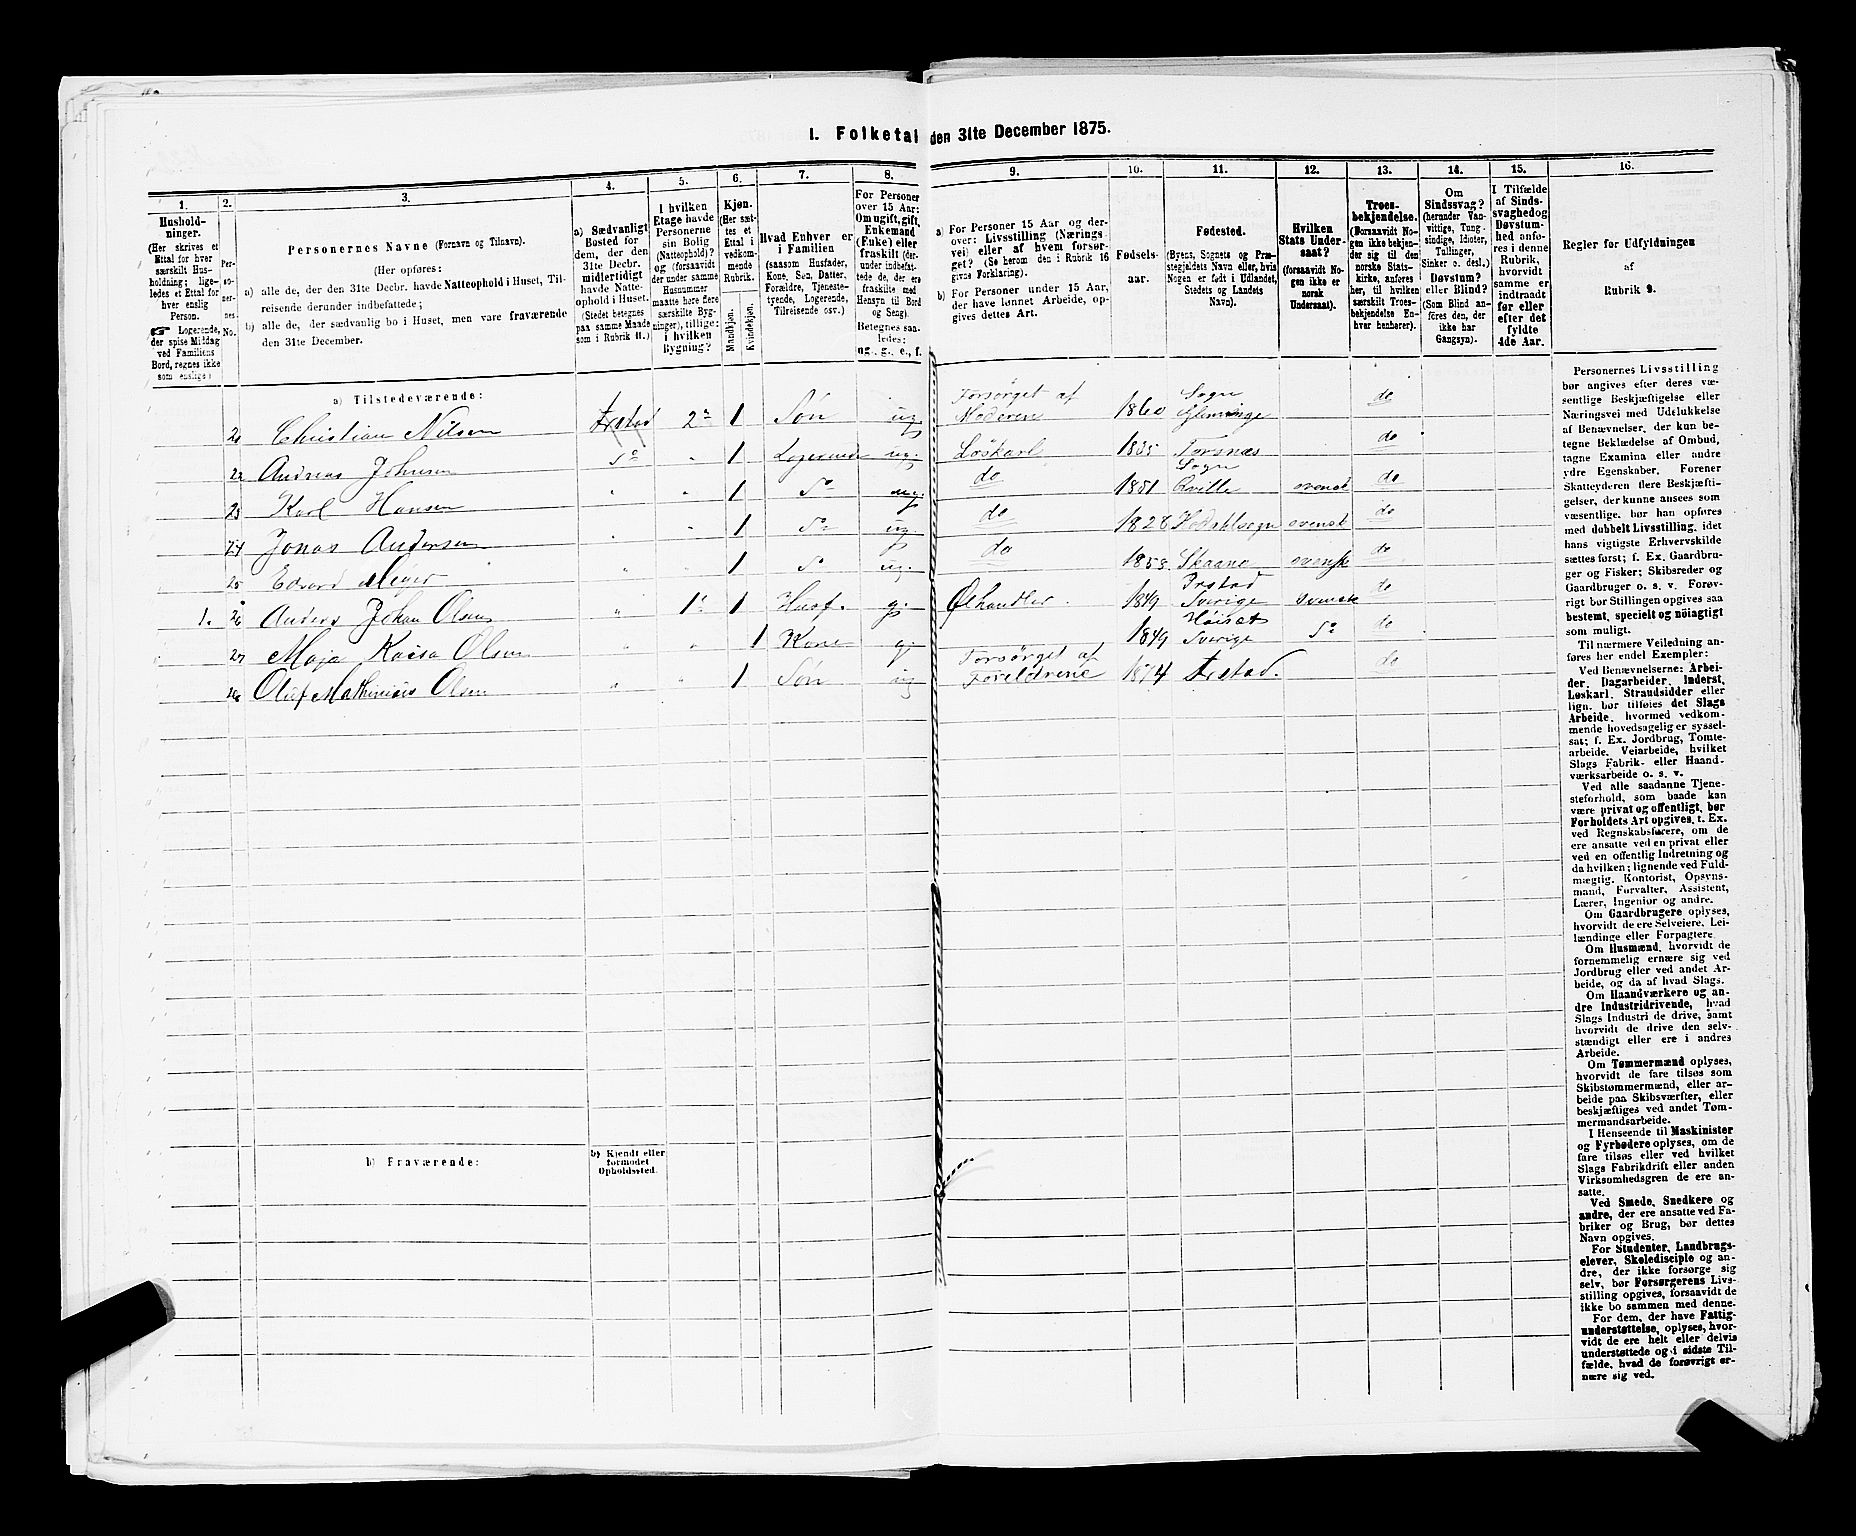 I. Folketal den 31te December 1875.
1.
Hushold-
ninger.
(Her skrives et
Ettal for hver
særskilt Hus-
holdning; lige-
ledes et Ettal for
hver enslig
Person.
☛ Logerende,
der spise Middag
ved Familiens
Bord, regnes ikke
som enslige.)
2.
Per-
soner-
nes
No.
3.
Personernes Navne (Fornavn og Tilnavn).
(Her opføres:
a) alle de, der den 31te Decbr. havde Natteophold i Huset, Til-
reisende derunder indbefattede;
b) alle de, der sædvanlig bo i Huset, men vare fraværende
den 31te December.
4.
a) Sædvanligt
Bosted for
dem, der den
31te Decbr.
midlertidigt
havde Natte-
ophold i Huset.
(Stedet betegnes
paa samme Maade
som i Rubrik 11.)
5.
I hvilken
Etage havde
Personerne
sin Bolig
(Natteophold)?
og (forsaavidt
der under samme
Husnummer
maatte høre flere
særskilte Byg-
ninger), tillige:
i hvilken
Bygning?
6.
Kjøn.
(Her sæt-
tes et
Ettal i
vedkom-
mende
Rubrik.
Mandkjøn.
Kvindekjøn.
7.
Hvad Enhver er
i Familien
(saasom Husfader,
Kone, Søn, Datter,
Forældre, Tjeneste-
tyende, Logerende,
Tilreisende osv.)
8.
For Personer
over 15 Aar:
Om ugift, gift,
Enkemand
(Enke) eller
fraskilt (der-
under indbefat-
tede de, der ere
fraskilte med
Hensyn til Bord
og Seng).
Betegnes saa-
ledes:
ug., g., e., f.
9.
a) For Personer 15 Aar og der-
over: Livsstilling (Nærings-
vei) eller af hvem forsør-
get? (Se herom den i Rubrik 16
givne Forklaring).
b) For Personer under 15 Aar,
der have lønnet Arbeide, op-
gives dettes Art.
10.
Fødsels-
aar.
11.
Fødested.
(Byens, Sognets og Præ-
stegjeldets Navn eller, hvis
Nogen er født i Udlandet,
Stedets og Landets
Navn).
12.
Hvilken
Stats Under-
saat?
(forsaavidt No-
gen ikke er
norsk
Undersaat).
13.
Troes-
bekjendelse.
(Forsaavidt No-
gen ikke bekjen-
der sig til den
norske Stats-
kirke, anføres
her, til hvilken
særskilt Troes-
bekjendelse En-
hver henhører).
14.
Om
Sindssvag?
(herunder Van-
vittige, Tung-
sindige, Idioter,
Tullinger,
Sinker o. desl.)
Døvstum?
eller Blind?
(Som Blind an-
føres den, der
ikke har
Gangsyn).
15.
I Tilfælde
af Sinds-
svaghed og
Døvstum-
hed anfø-
res i denne
Rubrik,
hvorvidt
samme er
indtraadt
før eller
efter det
fyldte
4de Aar.
16.
Regler for Udfyldningen
af
Rubrik 9.
a) Tilstedeværende:
Christian Nilsen 2 1 Søn ug Forsørget af Moderen 1860 Sogn do
22 Andreas Johnsen " 1 Logerende ug. Løskarl 1835 Torsnæs Sogn do
23 Karl Hansen " " 1 do ug. do 1851 Qville svensk do
24 Jonas Andersen " " 1 do ug do 1828 svensk do
25 Edvard " " 1 do ug. do 1853 Skaane svensk do
1. 26 Anders Johan Olsen " 1 1 Husf. g. Ølhandler. 1849 Sverige svensk do
27 Maja Kaisa Olsen " " 1 Kone g. 1849 Sverige do do
28 Olief Mathinius Olsen " " 1 Søn ug Forsørget af Foreldrene 1874 do
b) Fraværende:
b) Kjendt eller
formodet
Opholdssted.
Personernes Livsstilling
bør angives efter deres væ-
sentlige Beskjæftigelse eller
Næringsvei med Udelukkelse
af Benævnelser, der kun be-
tegne Beklædelse af Ombud,
tagne Examina eller andre
ydre Egenskaber. Forener
Skatteyderen flere Beskjæfti-
gelser, der kunne ansees som
væsentlige, bør han opføres
med dobbelt Livsstilling, idet
hans vigtigste Erhvervskilde
sættes først; f. Ex. Gaardbru-
ger og Fisker; Skibsreder og
Gaardbruger o. s. v. Forøv-
rigt bør Stillingen opgives saa
bestemt, specielt og nøiagtigt
som muligt.
Til nærmere Veiledning an-
føres her endel Exempler:
Ved Benævnelserne: Arbei-
der, Dagarbeider, Inderst,
Løskarl, Strandsidder eller
lign. bør tilføies det Slags
Arbeide, hvormed vedkom-
mende hovedsagelig er syssel-
sat; f. Ex. Jordbrug, Tomte-
arbeide, Veiarbeide, hvilket
Slags Fabrik- eller Haand-
værksarbeide o. s. v.
Ved alle saadanne Tjene-
steforhold, som baade kan
være privat og offentligt, bør
Forholdets Art opgives, t. Ex.
ved Regnskabsførere, om de
ere ansatte ved en privat eller
ved en offentlig Indretning og
da hvilken; lignende ved Fuld-
mægtig, Kontorist, Opsyns-
mand, Forvalter, Assistent,
Lærer, Ingeniør og andre.
Om Gaardbrugere oplyses,
hvorvidt de ere Selveiere, Lei-
lændinge eller Forpagtere.
Om Husmænd, hvorvidt de
fornemmelig ernære sig ved
Jordbrug eller ved andet Ar-
beide, og da af hvad Slags.
Om Haandværkere og an-
dre Industridrivende, hvad
Slags Industri de drive, samt
hvorvidt de drive den selv-
stændigt eller ere i andres
Arbeide.
Om Tømmermænd oplyses,
hvorvidt de fare tilsøs som
Skibstømmermænd, eller ar-
beide paa Skibsværfter, eller
beskjæftiges ved andet Tøm-
mermandsarbeide.
I Henseende til Maskinister
og Fyrbødere oplyses, om de
fare tilsøs eller ved hvilket
Slags Fabrikdrift eller anden
Virksomhedsgren de ere an-
satte.
Ved Smede, Snedkere og
andre, der ere ansatte ved Fa-
briker og Brug, bør dettes
Navn opgives.
For Studenter, Landbrugs-
elever, Skoledisciple og an-
dre, der ikke forsørge sig
selv, bør Forsørgerens Livs-
stilling opgives, forsaavidt de
ikke bo sammen med denne.
For dem, der have Fattig-
understøttelse, oplyses, hvor-
vidt de ere helt eller delvis
understøttede og i sidste Til-
fælde, hvad de forøvrigt er-
nære sig ved.